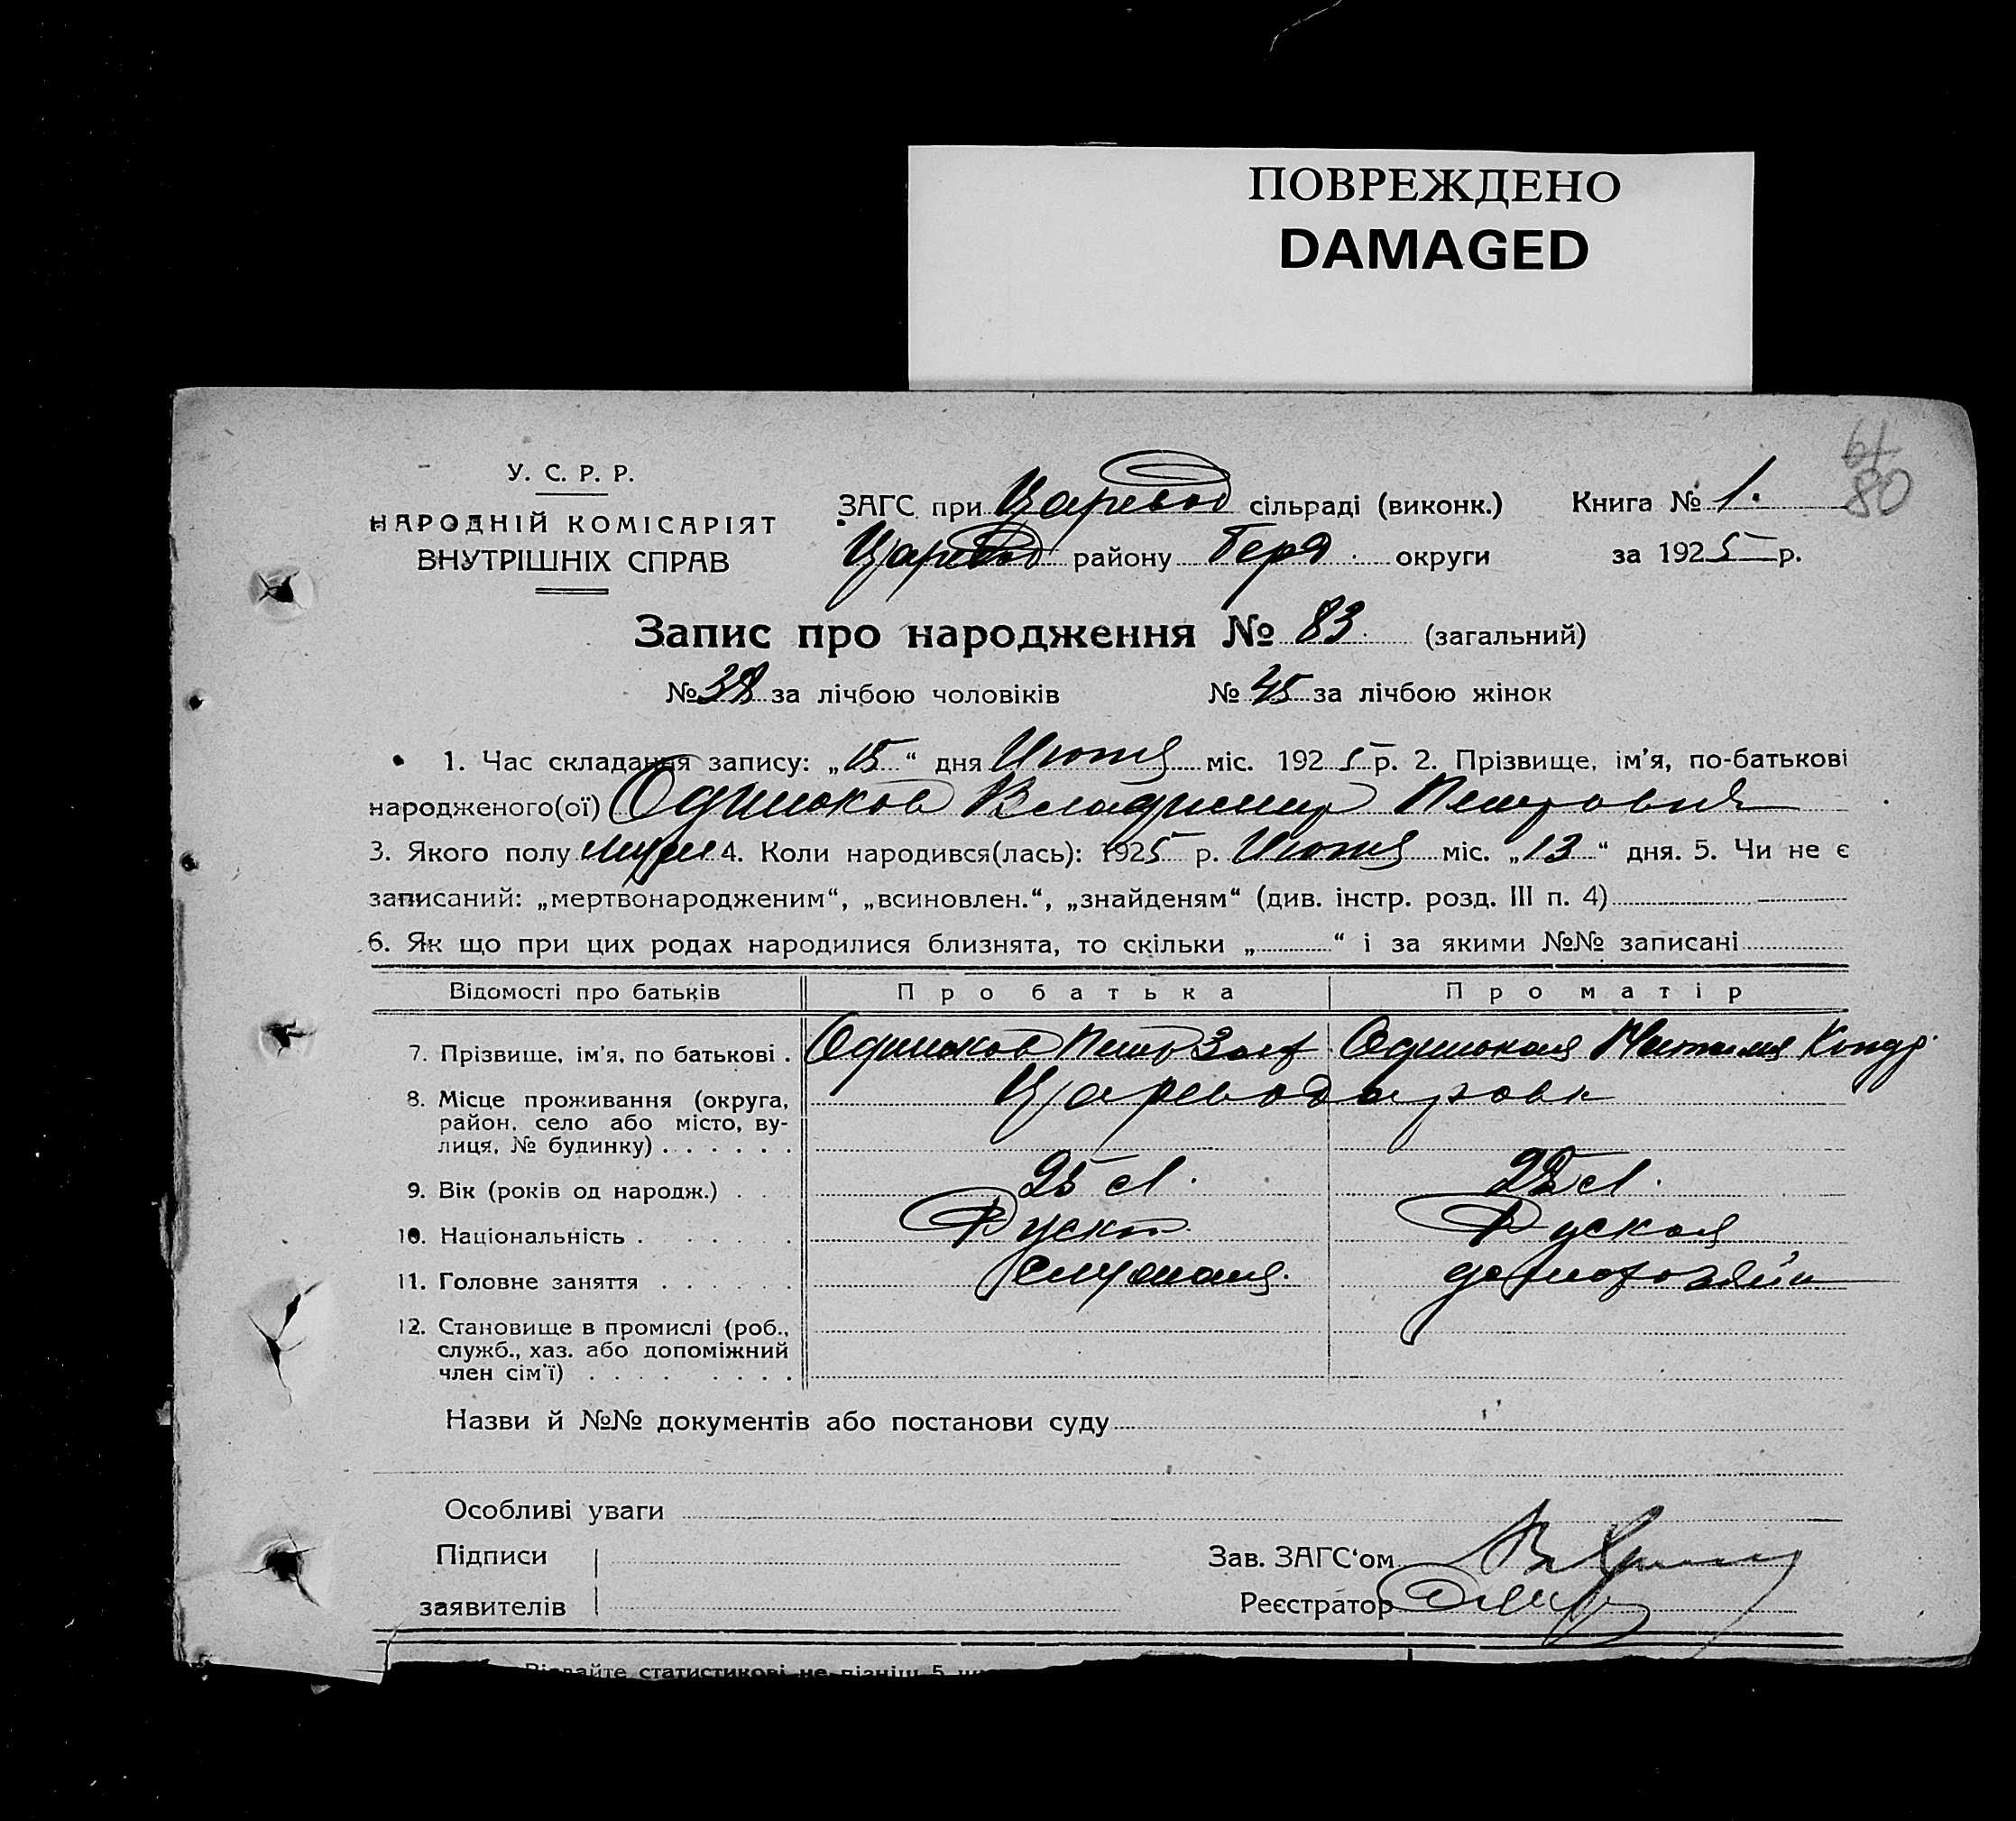 ПОВРЕЖДЕНО
DAMAGED
80
У. С. Р. Р.
НАРОДНІЙ КОМІСАРІЯТ
ВНУТРІШНІХ СПРАВ
ЗАГС при Царевод сільраді (виконк.)
Царевод району Берд. округи
Книга № 1.
за 1925 р.
Запис про народження № 83. (загальний)
№ 38 за лічбою чоловіків № 45 за лічбою жінок
1. Час складання запису: „15“ дня Июня міс. 1925 р. 2. Прізвище, ім'я, по-батькові
народженого(ої) Одиноков Владимир Петрович
3. Якого полу муж 4. Коли народився(лась): 1925 р. Июня міс. „13“ дня. 5. Чи не є
записаний: „мертвонародженим“, „всиновлен.“, „знайденям“ (див. інстр. розд. III п. 4)
6. Як що при цих родах народилися близнята, то скільки „ “ і за якими №№ записані
Відомості про батьків Про батька Про матір
7. Прізвище, ім'я, по батькові . Одиноков Петр Одинокая Наталия Кондр.
8. Місце проживання (округа, район, село або місто, ву-
лиця, № будинку) . . . . . . Цареводаровк
9. Вік (років од народж.) . . . 25 л. 22 л.
10. Національність . . . . . Руск Руская
11. Головне заняття . . . . . домохозяйк
12. Становище в промислі (роб.,
служб., хаз. або допоміжний
член сім'ї) . . . . . . . .
Назви й №№ документів або постанови суду
Особливі уваги
Підписи
заявителів
Зав. ЗАГС‘ом
Реєстратор
статистикові не пізніш 5